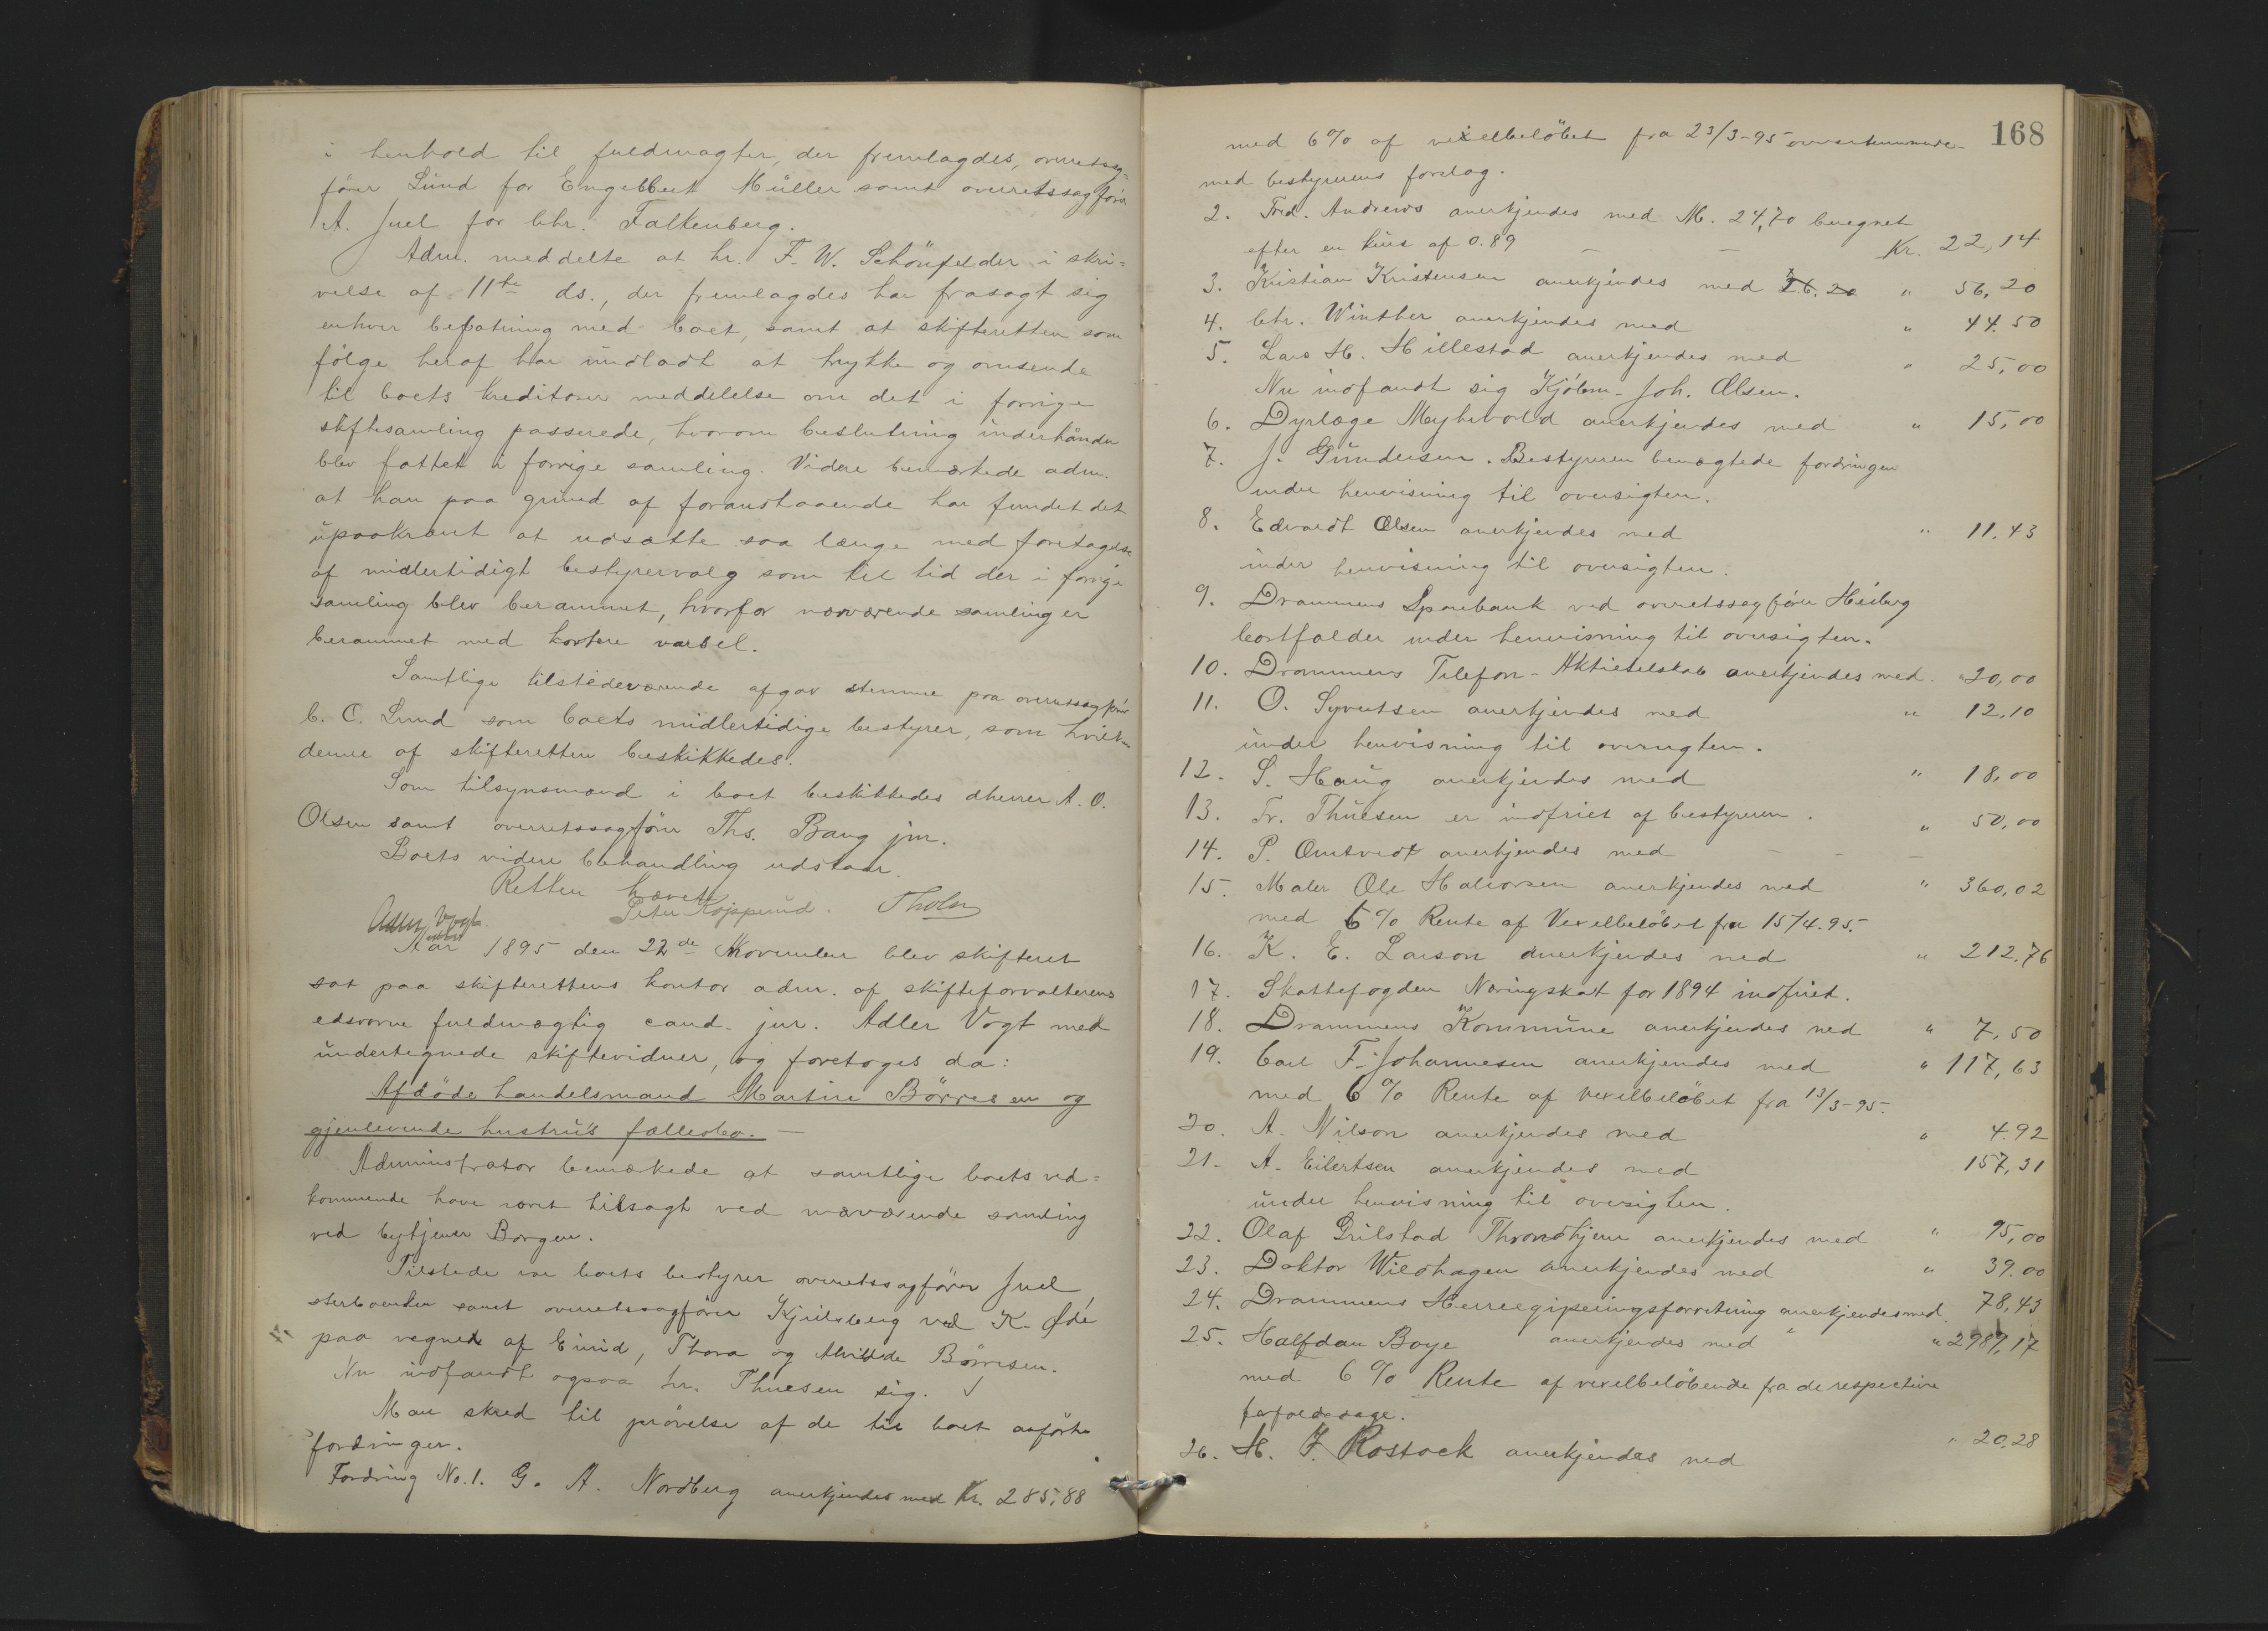 i henhold til fuldmagter, der fremlagdes, overretssag-
fører Lund for Engelbert Müller samt overretssagfører
A. Juel for Chr. Falkenberg.
Adm. meddelte at hr. F. W. Schönfelder i skri=
velse af 11te ds., der fremlagdes har frasagt sig
enhver befatning med boet, samt at skifteretten som
følge heraf har undladt at trykke og omsende
til boets kreditorer meddelelse om det i forrige
skiftesamling passerede, hvorom beslutning underhånden
blev fattet i forrige samling. Videre bemærkede adm.
at han paa grund af foranstaaende har fundet det
upaakrævet at udsætte saa længe med foretagelse
af midlertidigt bestyrervalg som til tid der i forrige
samling blev berammet, hvorfor nærværende samling er
berammet med kortere varsel.
Samtlige tilstedeværende afgav stemme paa overretssagfører
C. C. Lund som boets midlertidige bestyrer, som hvilken
denne af skifteretten beskikkedes.
Som tilsynsmænd i boet beskikkedes dherrer A. O.
Olsen samt overretssagfører Ths. Bang jnr.
Boets videre behandling udstaar.
Retten hævet
Adler Vogt Peter Kopperud. Tholn
Aar 1895 den 22de November blev skifteret
sat paa skifterettens kontor adm. af skifteforvalterens
edsvorne fuldmægtig cand. jur. Adler Vogt med
undertegnede skiftevidner, og foretoges da:
Afdøde handelsmand Martin Börresen og
gjenlevende hustru's fællesbo. —
Administrator bemærkede at samtlige boets ved=
kommende have været tilsagt ved nærværende samling
ved bytjener Borgen.
Tilstede var boets bestyrer overretssagfører Juel,
sterboenken samt overretssagfører Kjilsberg ved K. Øde
paa vegne af Einid, Thora og Alvilde Börresen.
Nu indfandt ogsaa hr. Thuesen sig. √
Man skred til prøvelse af de til boet anførte
fordringer.
Fordring No. 1. G. A. Nordberg anerkjendes med Kr. 285,88
168
med 6% af vexelbeløbet fra 23/3-95 overenstemmende
med bestyrerens forslag.
2. Fred. Andrews anerkjendes med M. 24,70 beregnet
efter en kurs af 0.89 — — Kr. 22,14
3. Kristian Kristensen anerkjendes med 26.20 " 56,20
4. Chr. Winther anerkjendes med " 44.50
5. Lars H. Hillestad anerkjendes med " 25,00
Nu indfandt sig Kjøbm. Joh. Olsen.
6. Dyrlæge Myhrvold anerkjendes med " 15,00
7. J. Gundersen. Bestyreren benægtede fordringen
under henvisning til oversigten.
8. Edvardt Olsen anerkjendes med " 11,43
under henvisning til oversigten.
9. Drammens Sparebank ved overretssagfører Heiberg
bortfalder under henvisning til oversigten.
10. Drammens Telefon-Aktieselskab anerkjendes med. " 20,00
11. O. Syvertsen anerkjendes med " 12,10
under henvisning til oversigten.
12. S. Haug anerkjendes med " 18,00
13. Fr. Thuesen er indfriet af bestyreren.
14. P. Omtvedt anerkjendes med — — — " 50,00
15. Maler Ole Halvorsen anerkjendes med " 360,02
med 6% Rente af Vexelbeløbet fra 15/4.95.
16. K. E. Larson anerkjendes med " 212,76
17. Skattefogden Næringskat for 1894 indfriet.
18. Drammens Kommune anerkjendes med " 7,50
19. Carl F. Johannesen anerkjendes med " 117,63
med 6% Rente af vexelbeløbet fra 13/3-95.
20. A. Nilson anerkjendes med " 4.92
21. A. Eilertsen anerkjendes med 157,31
under henvisning til oversigten.
22. Olaf Grilstad Throndhjem anerkjendes med " 95,00
23. Doktor Wildhagen anerkjendes med " 39.00
24. Drammens Herreegiperingsforretning anerkjendes med " 78,43
25. Halfdan Boye anerkjendes med " 2989,17
med 6% Rente af vexelbeløbende fra de respective
forfaldsdage.
26. H. J. Rostock anerkjendes med " 20,28